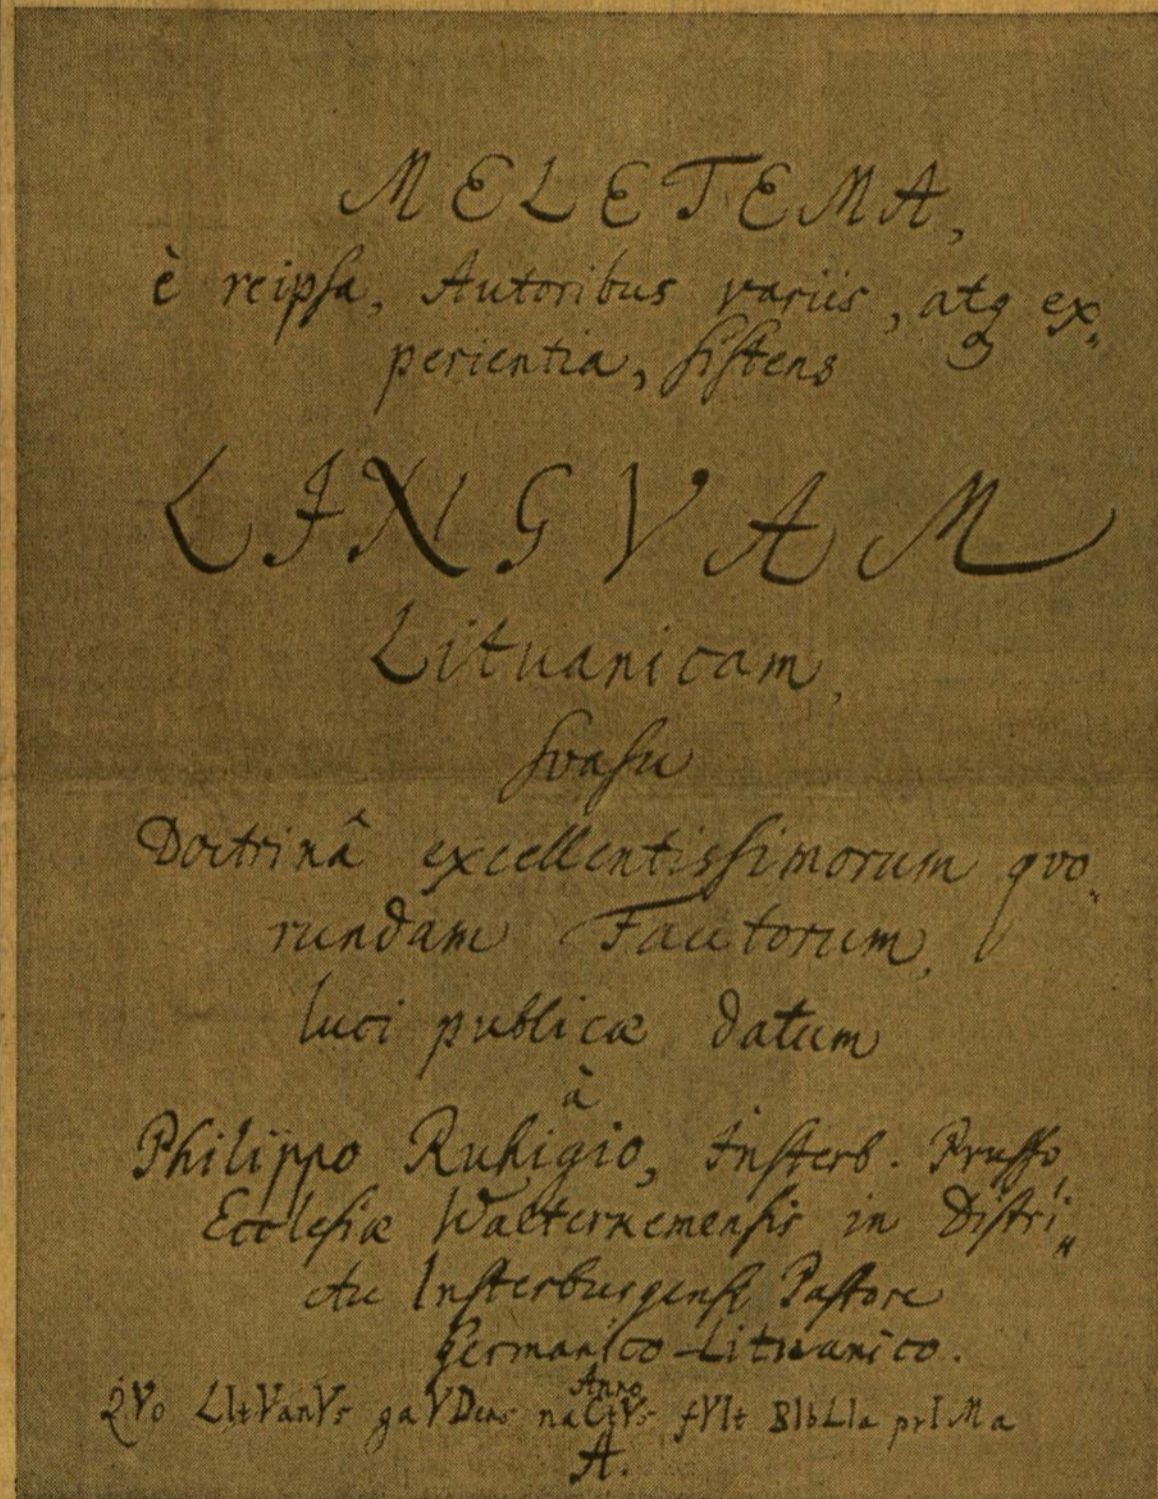 MELETEMA,
è reipſa, Autoribus variis, atq ex„
perientia, ſiſtens
LINGVAM
Lituanicam,
ſvaſu
Doctrinâ excellentisſimorum qvo„
rundam Fautorum,
luci publicæ datum
à
Philippo Ruhigio, Inſterb. Pruſſo,
Eccleſiæ Walterkemenſis in Diſtri„
ctu Inſterburgenſi Paſtore
Germanico-Lituanico.
Anno
QVo LItVanVs gaVDens naCtVs fVIt BIbLIa prIMa
A.